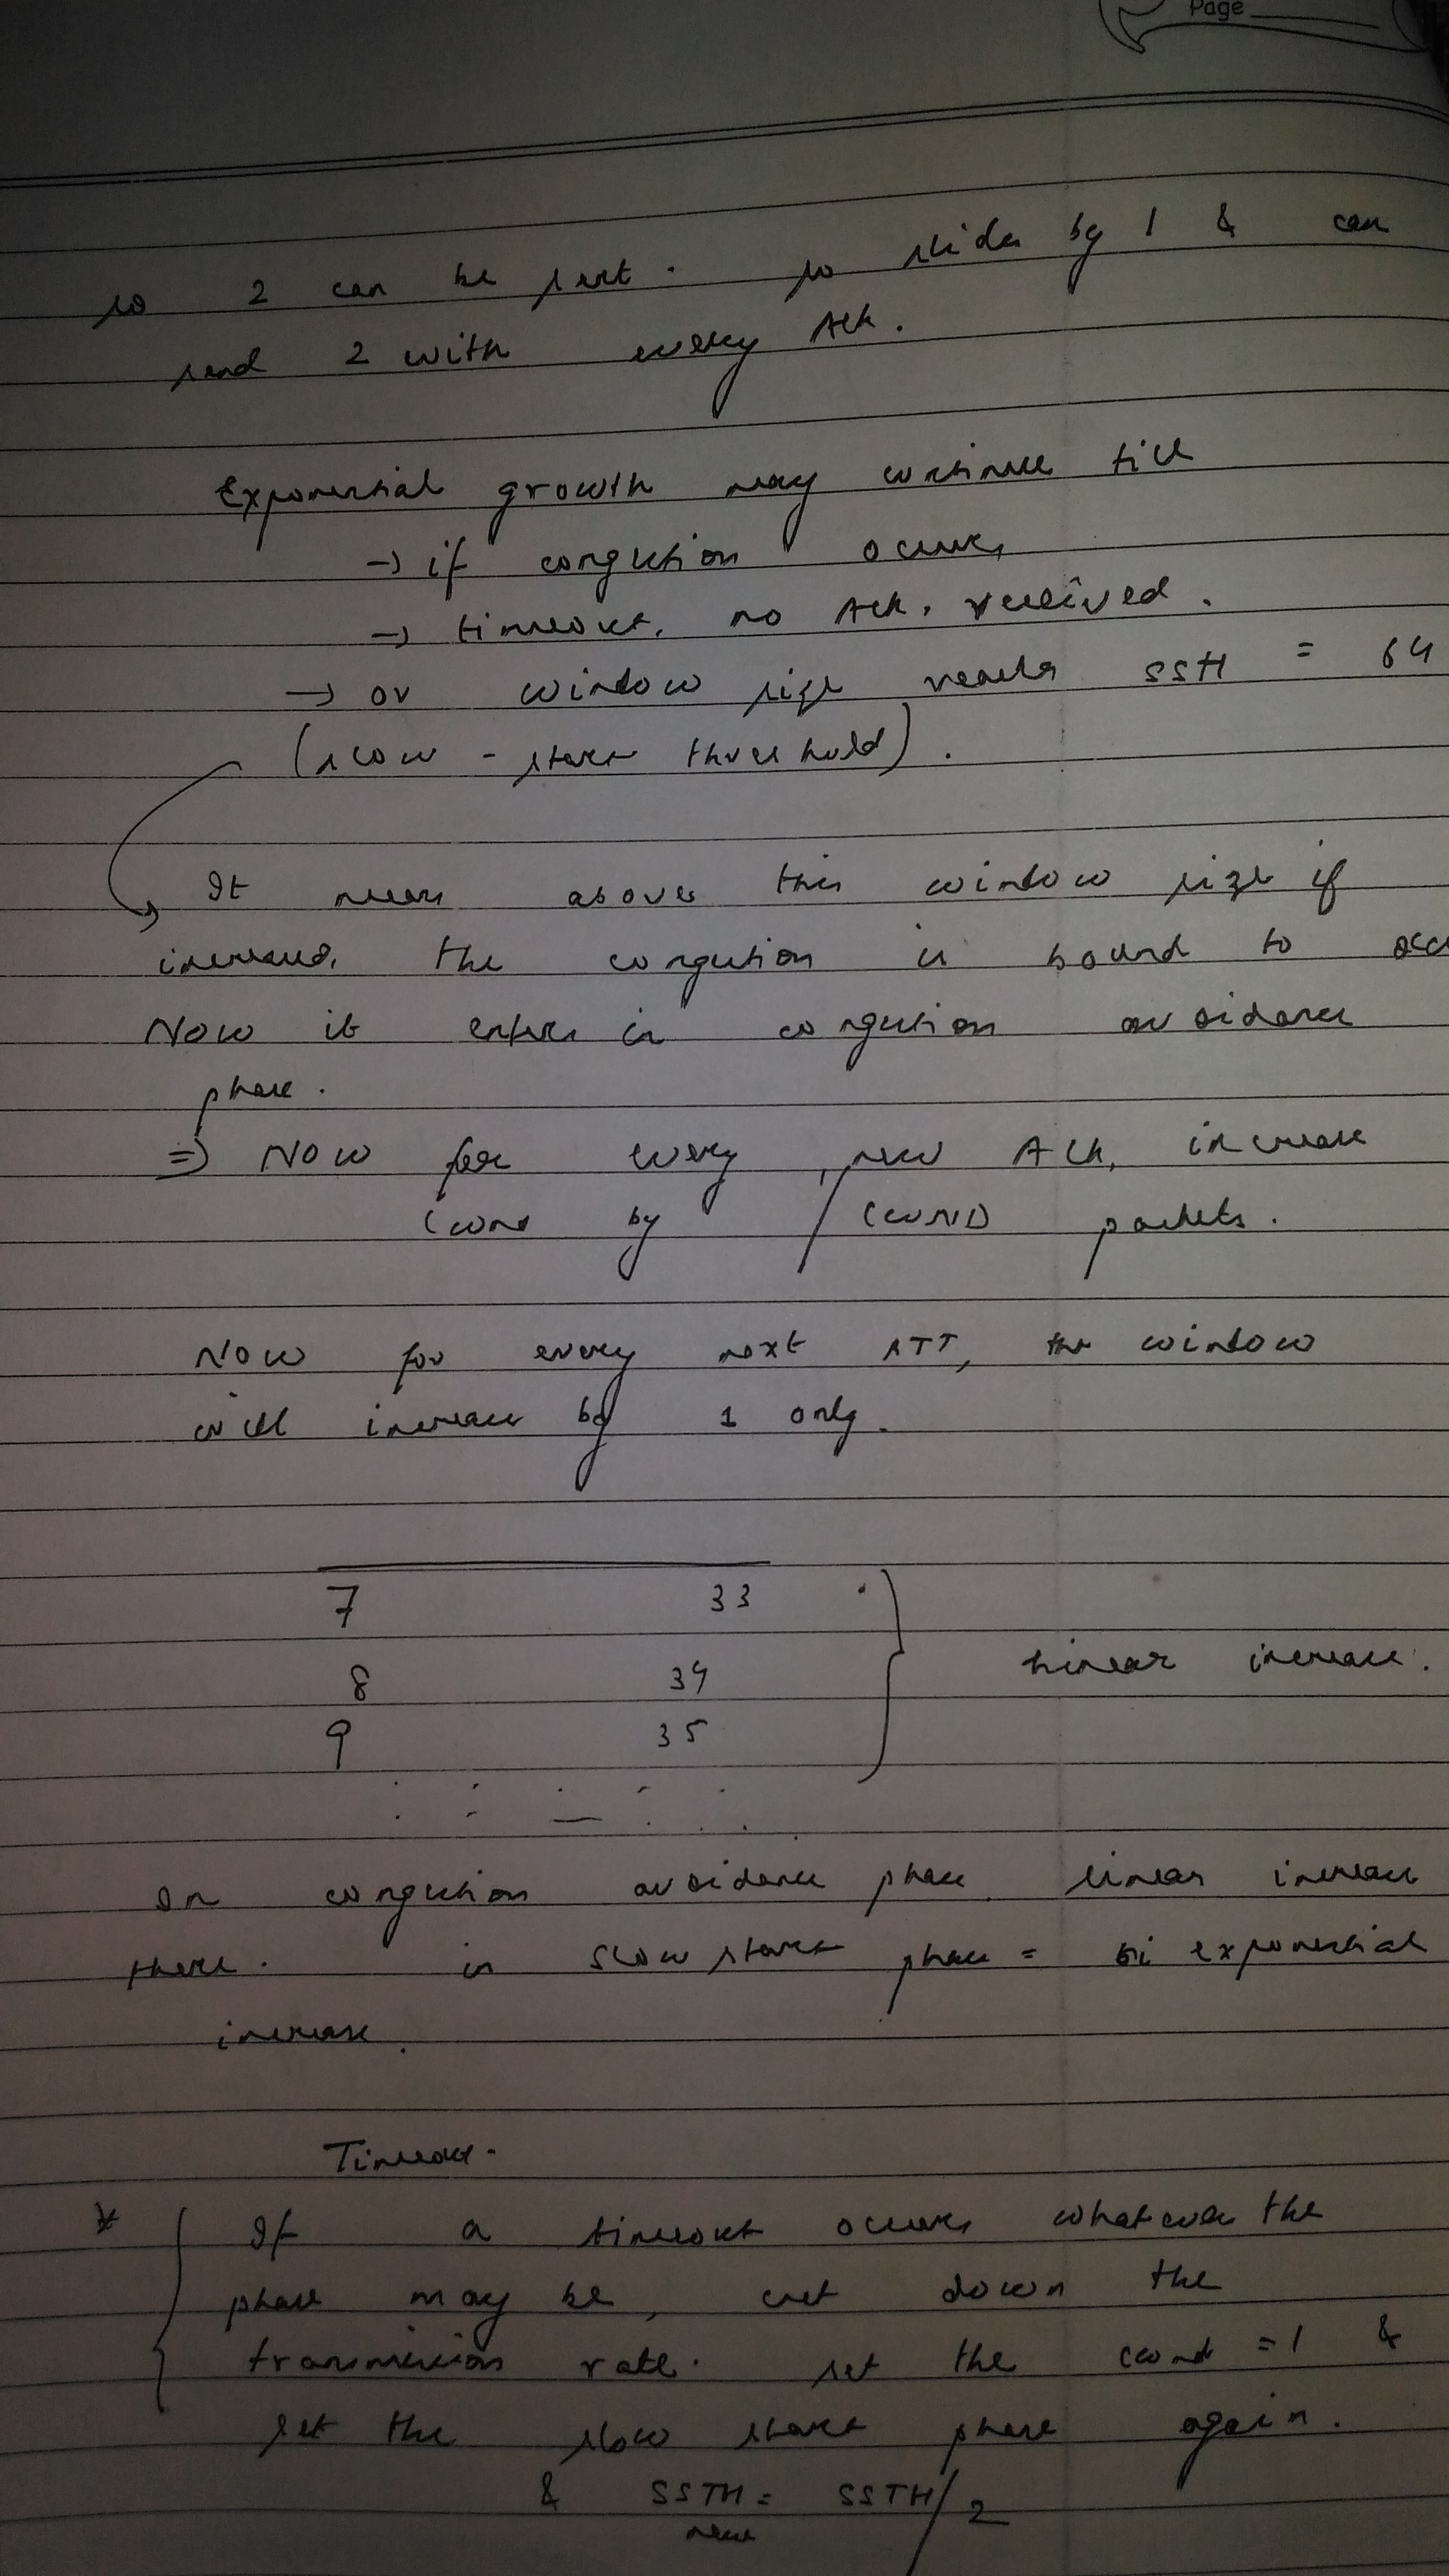 Page
so 2 can be sent. so slides by 1 & can
send 2 with every Ack.
Exponential growth may continue till
→ if congestion occurs
→ timeout, no Ack. received.
→ or window size reaches SSH = 64
(slow - start threshold).
It means above this window size if
increased, the congestion is bound to occ
Now it enters in congestion avoidance
phase.
⇒ Now for every new Ack, increase
Cwnd by 1/CWND packets.
Now for every next RTT, the window
will increase by 1 only.
7 33
8 34
9 35
linear increase.
In congestion avoidance phase linear increase
there. in slow start phase = exponential
increase.
Timeout.
* If a timeout occurs whatever the
phase may be, cut down the
transmission rate. set the cwnd = 1 &
let the slow start phase again.
& SSTH = SSTH/2
new